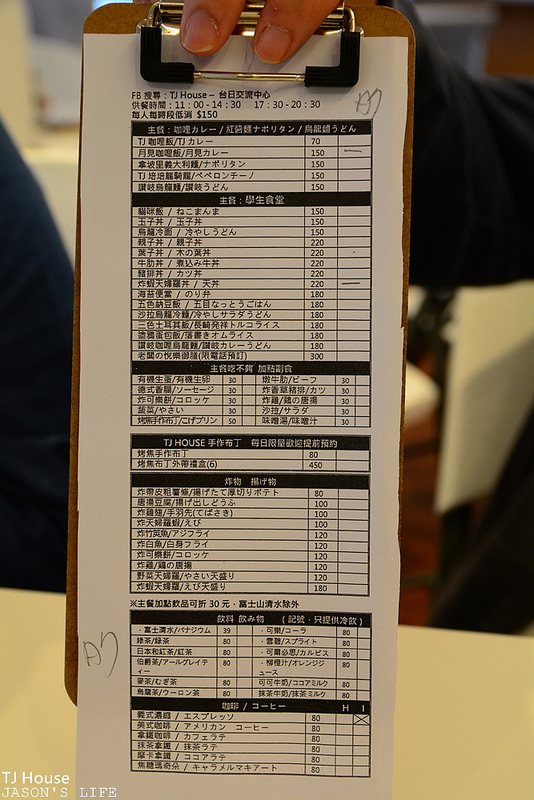 FB 搜尋：TJ House – 台日交流中心
供餐時間：11：00 - 14：30　17：30 - 20：30
每人每時段低消 $150
主食：咖哩カレー / 紅醬麵ナポリタン / 烏龍麵うどん
TJ 咖哩飯/TJ カレー 70
月見咖哩飯/月見カレー 150
拿坡里義大利麵/ナポリタン 150
TJ 培培龍騎服/ペペロンチーノ 150
讚岐烏龍麵/讚岐うどん 150
主食：學生食堂
貓咪飯 / ねこまんま 150
玉子丼 / 玉子丼 150
烏龍冷面 / 冷やしうどん 150
親子丼 / 親子丼 220
葉子丼 / 木の葉丼 220
牛肋丼 / 煮込み牛丼 220
豬排丼 / カツ丼 220
炸蝦天婦羅丼 / 天丼 220
海苔便當 / のり弁 180
五色納豆飯 / 五目なっとうごはん 180
沙拉烏龍冷麵/冷やしサラダうどん 180
三色土耳其飯/長崎発祥トルコライス 180
塗鴉蛋包飯/落書きオムライス 180
讚岐咖哩烏龍麵/讚岐カレーうどん 180
老闆の悅樂御膳(限電話預訂) 300
主食吃不夠 加點副食
有機生蛋/有機生卵 30 燉牛肋/ビーフ 30
德式香腸/ソーセージ 30 炸香草豬排/カツ 30
炸可樂餅/コロッケ 30 炸雞/鶏の唐揚 30
蔬菜/やさい 30 沙拉/サラダ 30
烤焦手作布丁/こげプリン 50 味噌湯/味噌汁 30
TJ HOUSE 手作布丁　每日限量歡迎提前預約
烤焦手作布丁 80
烤焦布丁外帶禮盒(6) 450
炸物　揚げ物
炸帶皮粗薯條/揚げたて厚切りポテト 80
唐揚豆腐/揚げ出しどうふ 100
炸雞翅/手羽先(てばさき) 100
炸天婦羅蝦/えび 100
炸竹筴魚/アジフライ 120
炸白魚/白身フライ 120
炸可樂餅/コロッケ 120
炸雞/鶏の唐揚 120
野菜天婦羅/やさい天盛り 120
炸蝦天婦羅/えび天盛り 180
※主餐加點飲品可折 30 元，富士山清水除外
飲料 飲み物　(記號．只提供冷飲)
．富士清水/バナジウム 39 ．可樂/コーラ 80
綠茶/緑茶 80 ．雪碧/スプライト 80
日本和紅茶/紅茶 80 ．可爾必思/カルピス 80
伯爵茶/アールグレイティー 80 ．柳橙汁/オレンジジュース 80
麥茶/むぎ茶 80 可可牛奶/ココアミルク 80
烏龍茶/ウーロン茶 80 抹茶牛奶/抹茶ミルク 80
咖啡 / コーヒー H I
義式濃縮 / エスプレッソ 80
美式咖啡 / アメリカン コーヒー 80
拿鐵咖啡 / カフェラテ 80
抹茶拿鐵 / 抹茶ラテ 80
摩卡拿鐵 / ココアラテ 80
焦糖瑪奇朵 / キャラメルマキアート 80
TJ House
JASON'S LIFE